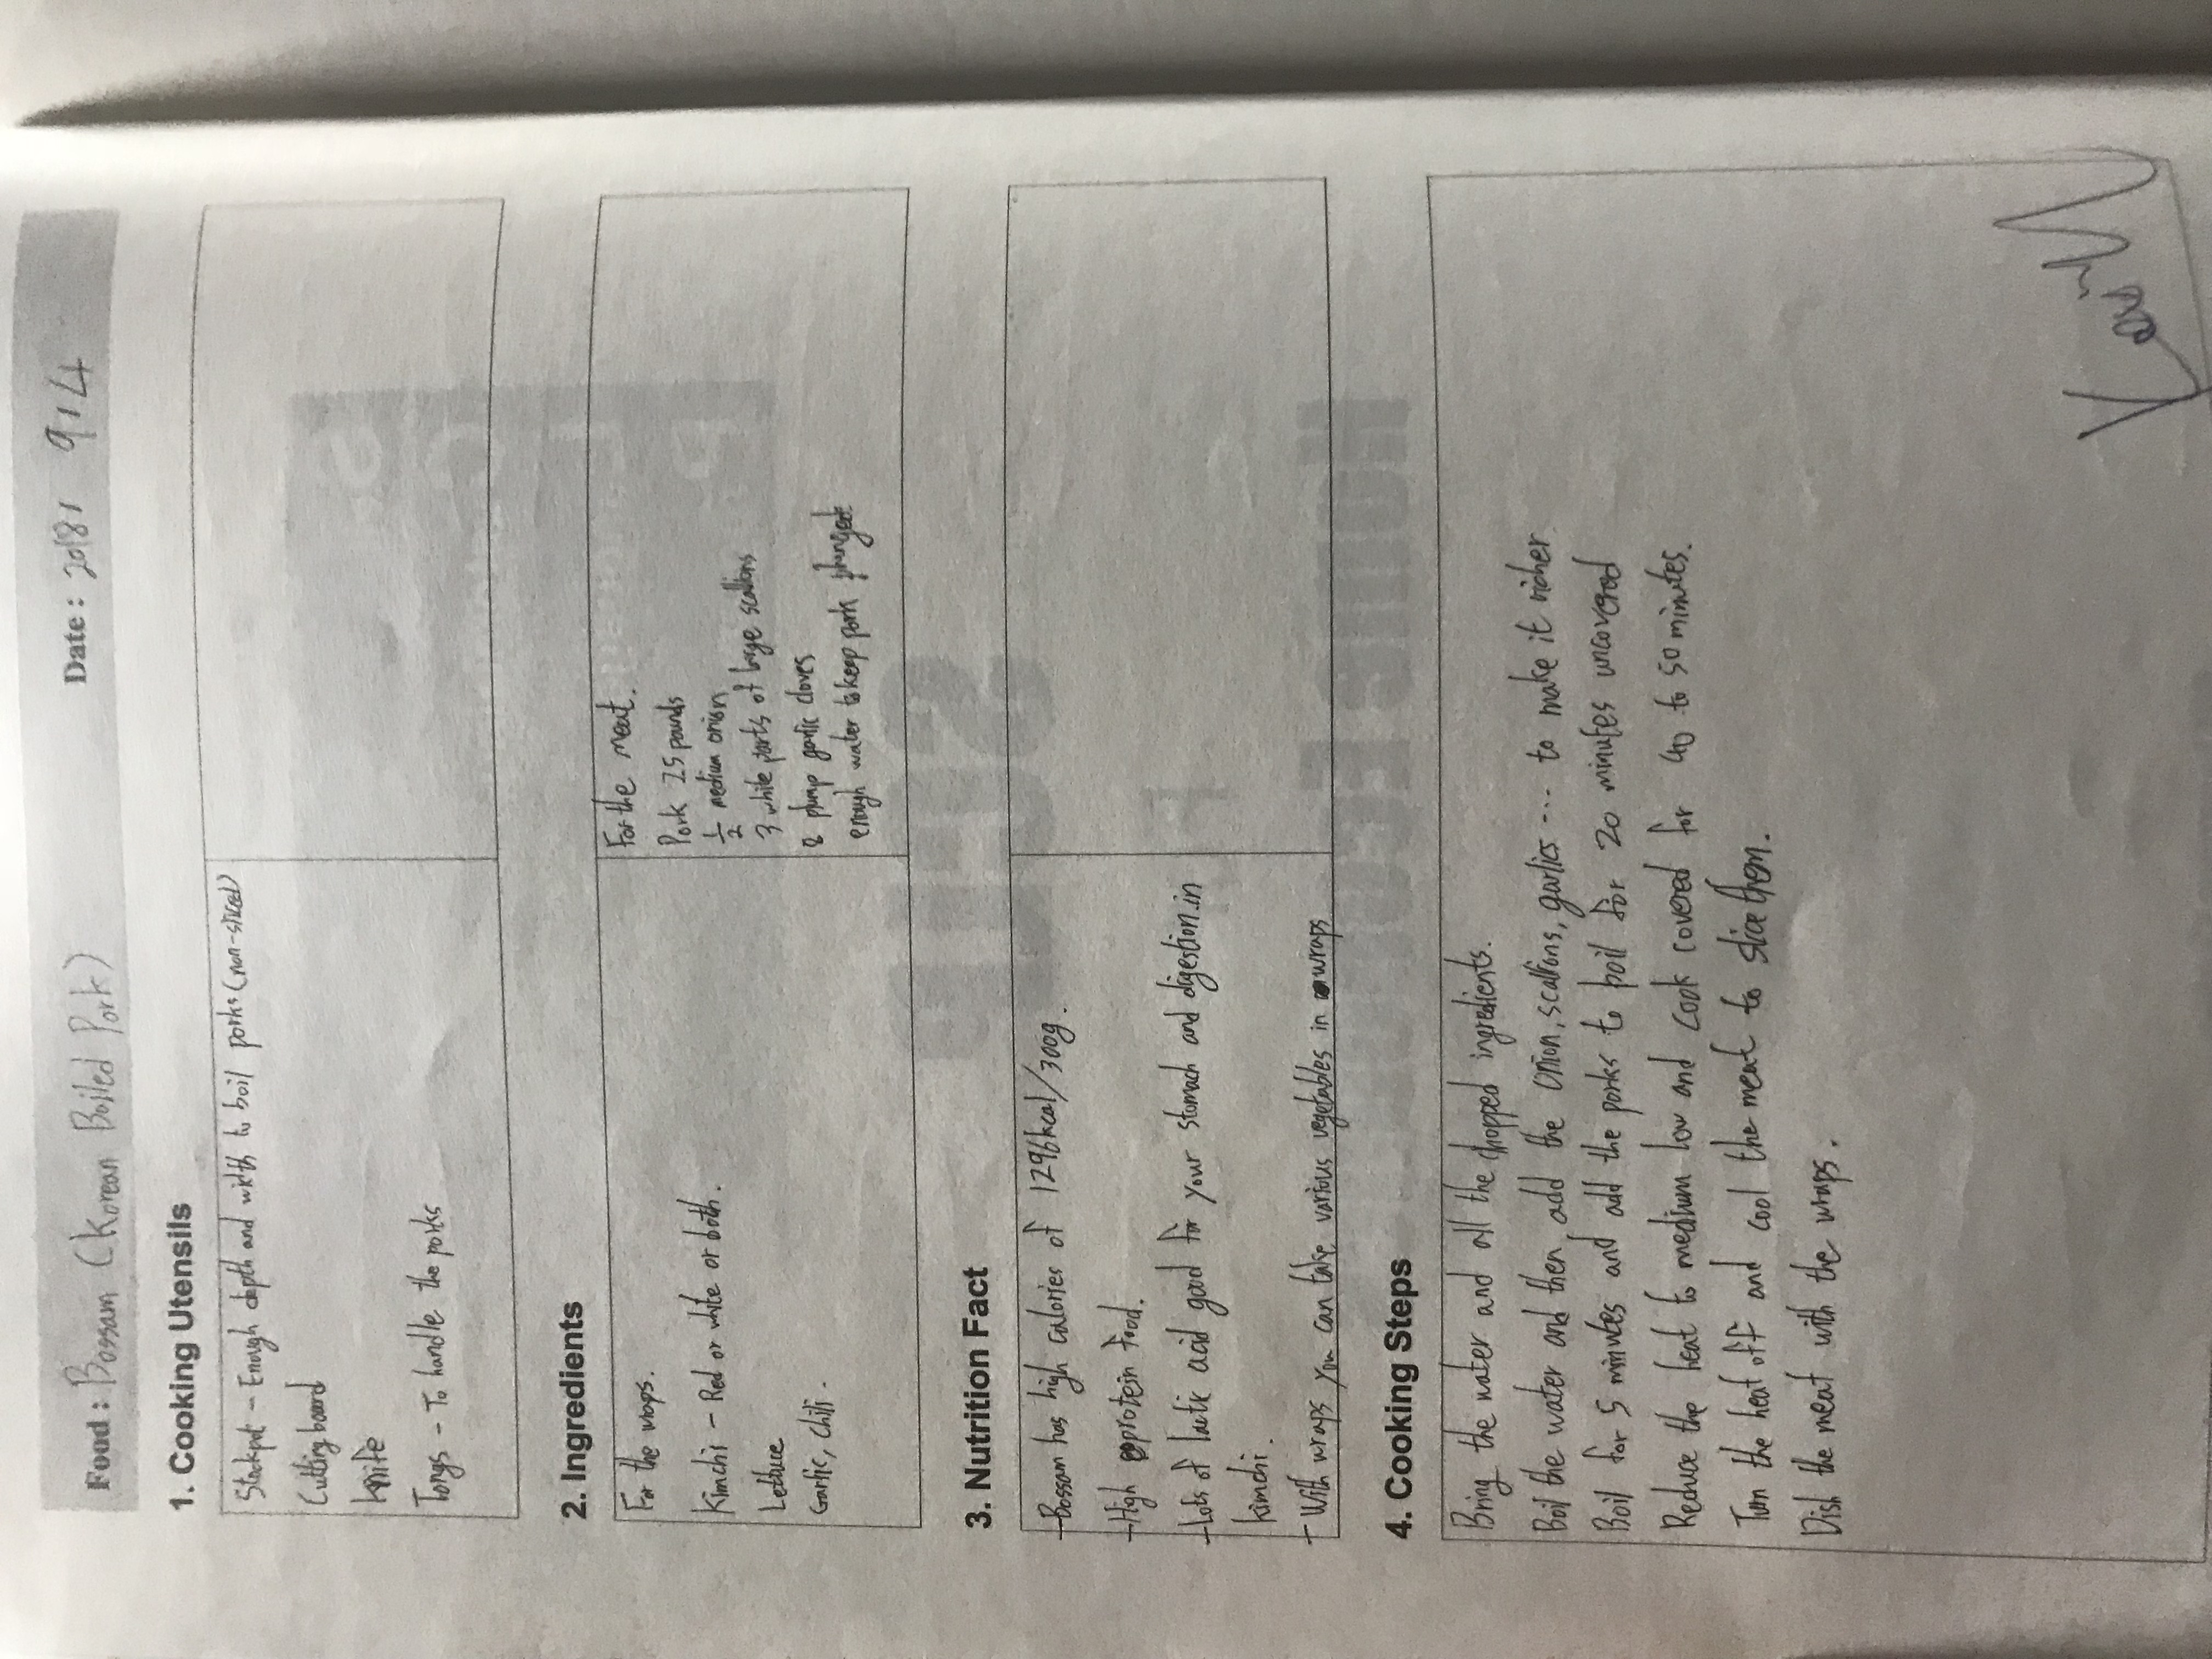 Food : Bossam (Korean Boiled Pork) Date : 2018/ 9/4
1. Cooking Utensils
Stockpot - Enough depth and width to boil porks (non-sliced)
Cutting board
knife
Tongs - To handle the porks
2. Ingredients
For the wraps.
Kimchi - Red or white or both.
Lettuce
Garlic, chili.
For the meat.
Pork 2.5 pounds
1/2 medium onion
3 white parts of large scallions
8 plump garlic cloves
enough water to keep pork plunged
3. Nutrition Fact
- Bossam has high calories of 1296kcal/300g.
- High protein food.
- Lots of lactic acid good for your stomach and digestion in
kimchi.
- With wraps you can take various vegetables in wraps
4. Cooking Steps
Bring the water and all the chopped ingredients.
Boil the water and then, add the onion, scallions, garlics ... to make it richer
Boil for 5 minutes and add the porks to boil for 20 minutes uncovered
Reduce the heat to medium low and cook covered for 40 to 50 minutes.
Turn the heat off and cool the meat to slice them.
Dish the meat with the wraps.